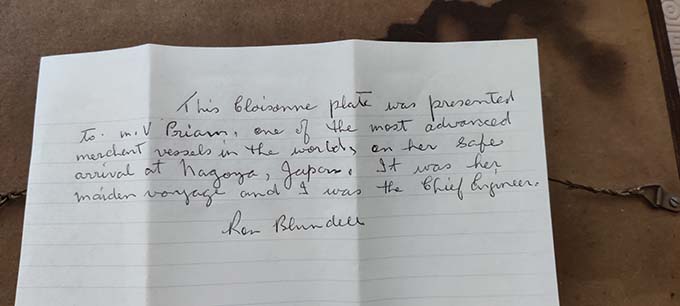 This Cloisonne plate was presented
to m.v Priam, one of the most advanced
merchant vessels in the world, on her safe
arrival at Nagoya, Japan. It was her
maiden voyage and I was the Chief Engineer.
Ron Blundell